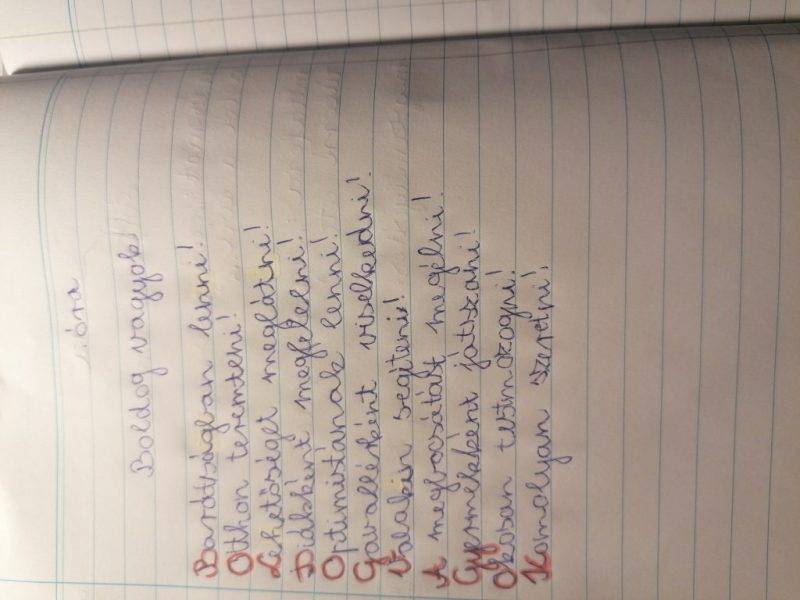 óra
Boldog vagyok!
Barátságban lenni!
Otthon teremteni!
Lehetőséget meglátni!
Diákként megfelelni!
Optimistának lenni!
Gavallérként viselkedni!
Valakin segíteni!
A megbocsátást megélni!
Gyermekként játszani!
Okosan testmozogni!
Komolyan szeretni!